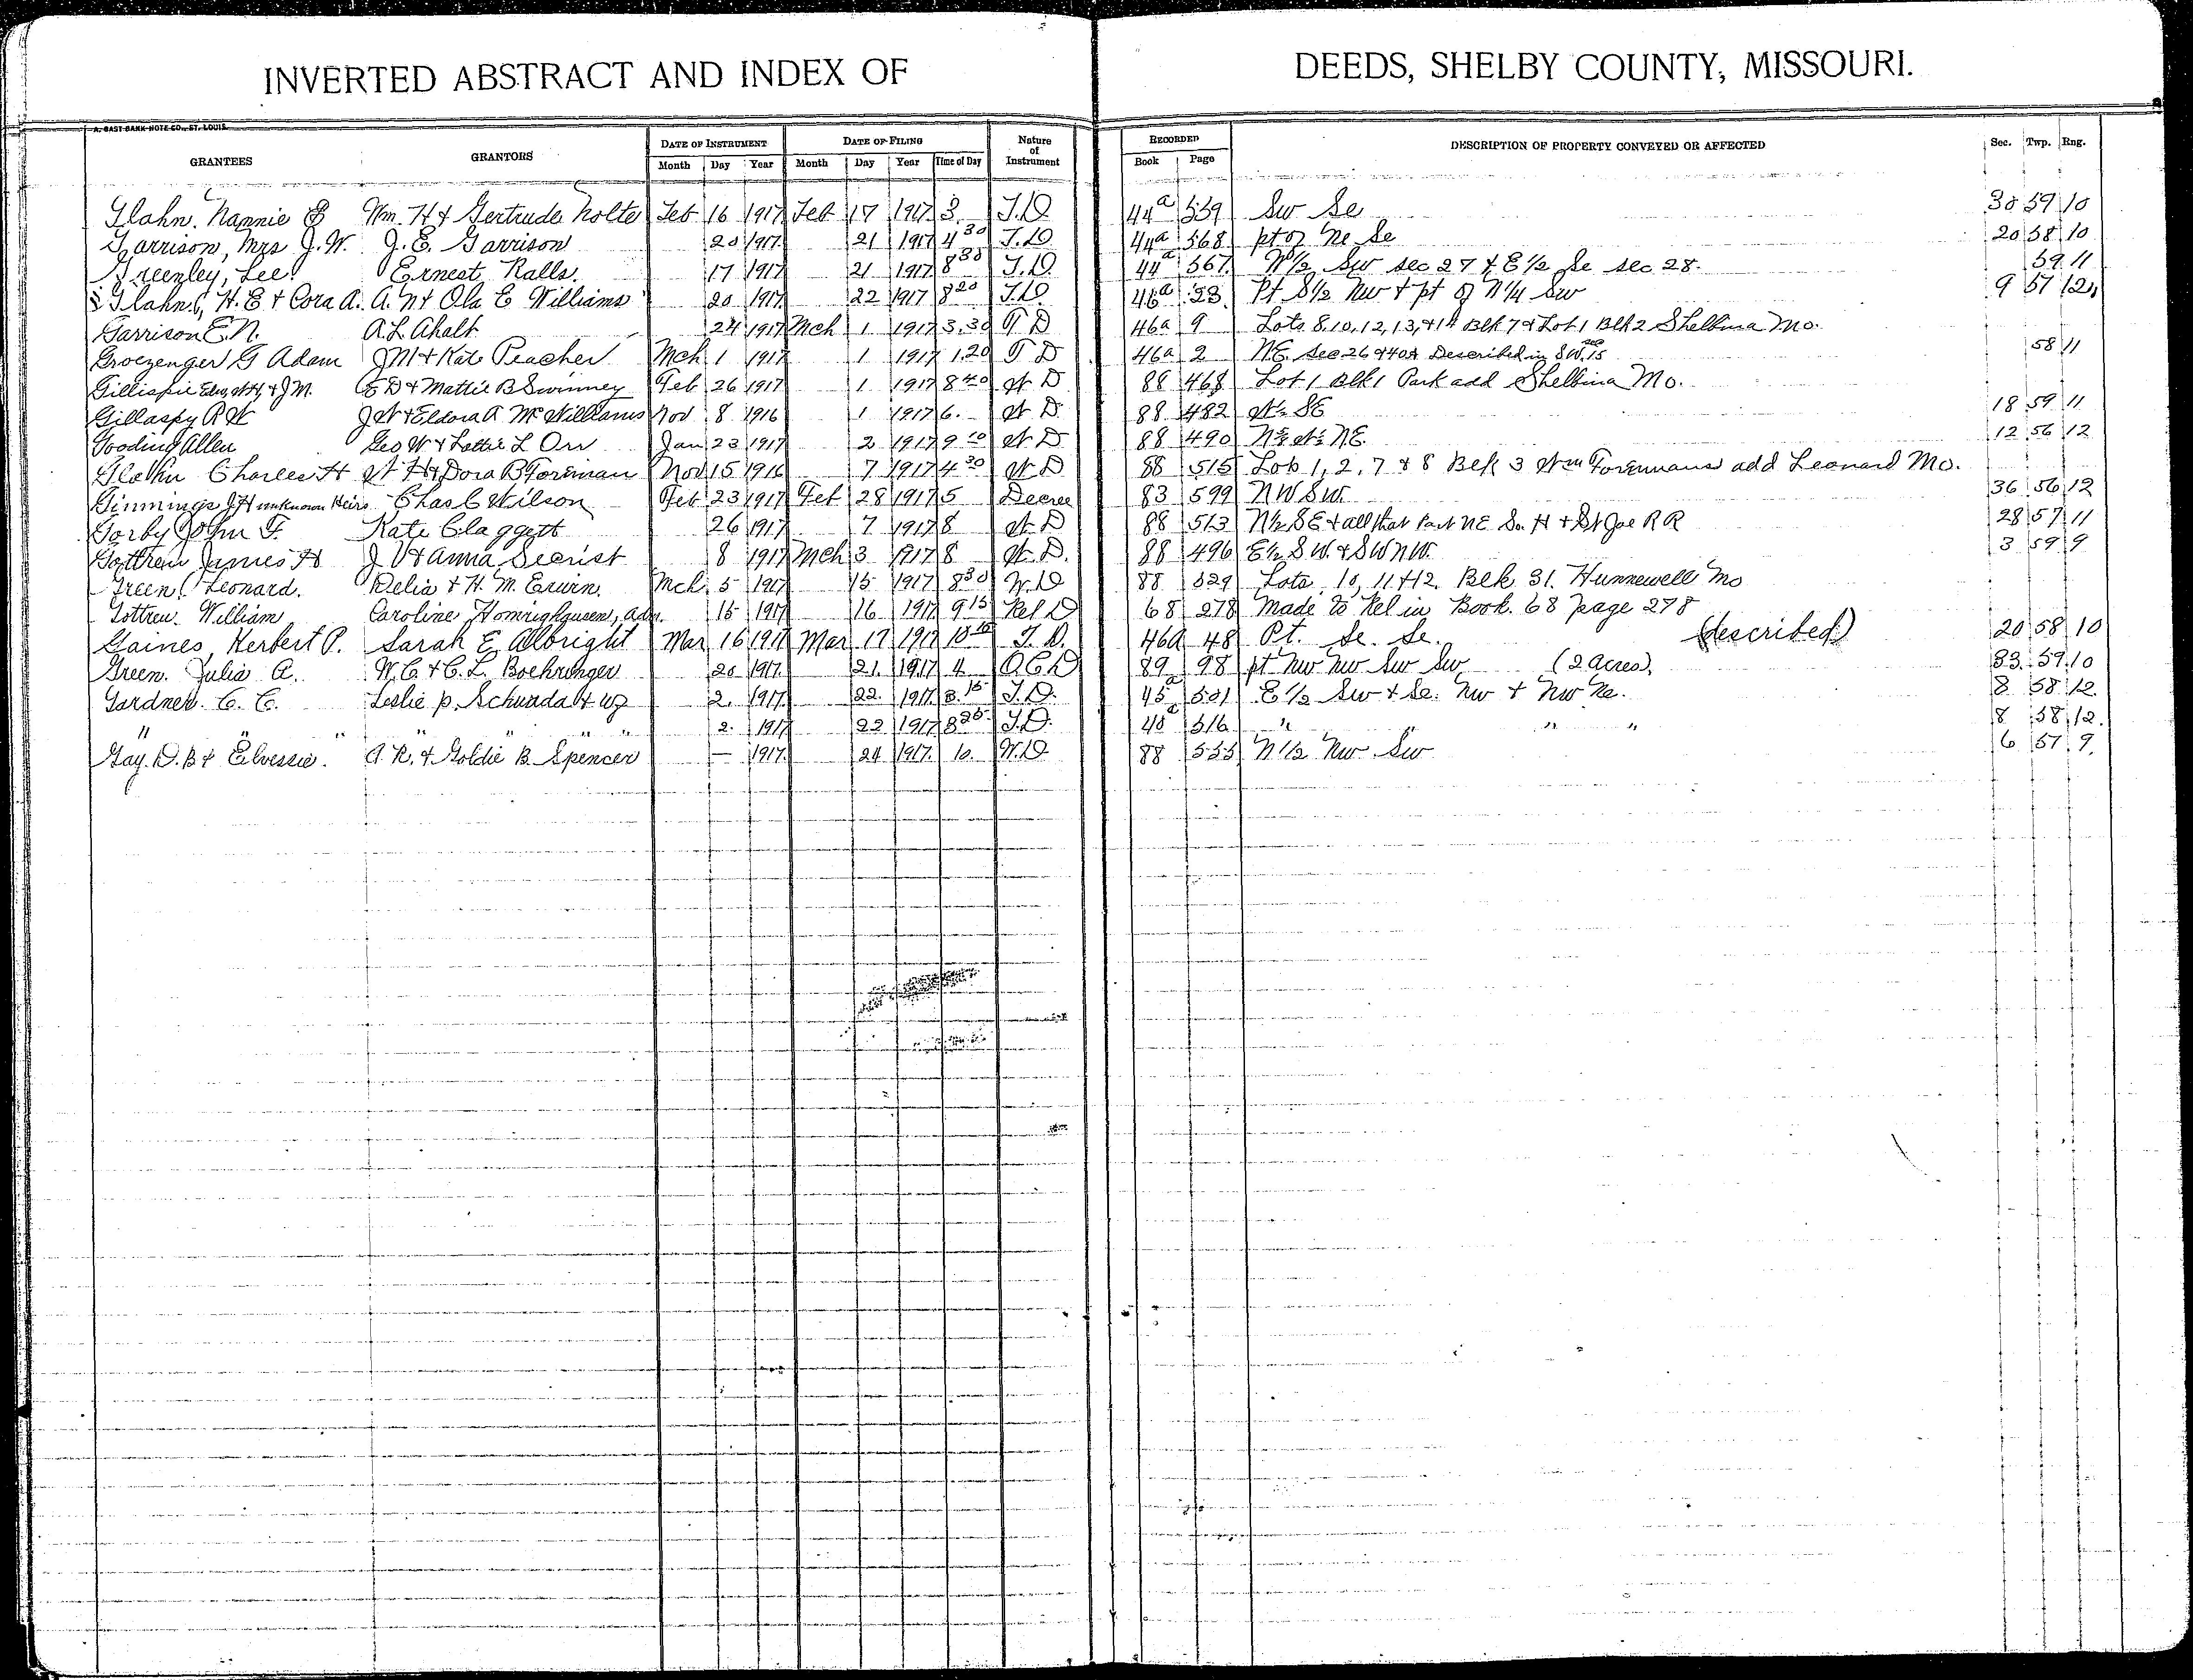 INVERTED ABSTRACT AND INDEX OF DEEDS, SHELBY COUNTY, MISSOURI.
A. GAST BANK NOTE CO., ST. LOUIS.
GRANTEES GRANTORS DATE OF INSTRUMENT DATE OF FILING Nature of Instrument RECORDED DESCRIPTION OF PROPERTY CONVEYED OR AFFECTED Sec. Twp. Rng.
Month Day Year Month Day Year Time of Day Book Page
Glahn, Nannie B Wm. H & Gertrude Nolte Feb 16 1917 Feb 17 1917 3. T.D 44a 539 Sw Se 30 59 10
Garrison, Mrs J.W. J. E. Garrison 20 1917 21 1917 4 30 T.D 44a 568 pt of Ne Se 20 58 10
Greenley, Lee. Ernest Ralls 17 1917 21 1917 8 30 T.D. 44a 567 W 1/2 Sw sec 27 & E 1/2 Se sec 28. 59 11
Glahn, H. E & Cora A. A. N & Ola E Williams 20 1917 22 1917 8 20 T.D 46a 23 Pt S 1/2 Nw & pt of N 1/4 Sw 9 57 12
Garrison E. N. A. L. Ahalt 24 1917 Mch 1 1917 3.30 T D 46a 9 Lots 8, 10, 12, 13, & 14 Blk 7 & Lot 1 Blk 2 Shelbina Mo.
Groezenger G Adam J M & Kate Peacher Mch 1 1917 1 1917 1.20 T D 46a 2 NE Sec 26 & 40A Described in SW 15 58 11
Gillispie Edw, & J M. E D & Mattie B Swinney Feb 26 1917 1 1917 8 40 W D 88 468 Lot 1 Blk 1 Park add Shelbina Mo.
Gillaspy R W J W & Eldora A McWilliams Nov 8 1916 1 1917 6. W D. 88 482 W 1/2 SE 18 59 11
Gooding Allen Geo W & Lottie L Orr Jan 23 1917 2 1917 9 10 W D 88 490 N 1/2 W 1/2 NE. 12 56 12
Glahn Charles H W H & Dora B Foreman Nov 15 1916 7 1917 4 30 W D 88 515 Lots 1, 2, 7 & 8 Blk 3 Wm Foremans add Leonard Mo.
Ginnings J H unknown Heirs Chas C Wilson Feb 23 1917 Feb 28 1917 5 Decree 83 599 NW SW 36 56 12
Gorby John F. Kate Claggett 26 1917 7 1917 8 W D 88 513 N 1/2 SE & all that Part NE So. H & St Joe R R 28 57 11
Gottren James H J V & Anna Secrist 8 1917 Mch 3 1917 8 W. D. 88 496 E 1/2 SW & SW NW. 3 59 9
Green Leonard. Delia & H. M. Erwin. Mch 5 1917 15 1917 8 30 W.D 88 529 Lots 10, 11 & 12. Blk 31. Hunnewell Mo
Gottren William Caroline Homrighausen, adm. 15 1917 16 1917 9 15 Rel D 68 278 Made to Rel in Book 68 page 278
Gaines, Herbert P. Sarah E Albright Mar 16 1917 Mar 17 1917 10 T. D. 46a 48 Pt. Se. Se. (described) 20 58 10
Green. Julia A. W. C. & C. L. Boehringer 20 1917 21 1917 4 Q C D 89 98 pt Nw Nw Sw Sw (2 acres). 33 59 10
Gardner. C. C. Leslie P. Schwada & wf 2. 1917 22 1917 8 15 T. D. 45a 501 E 1/2 Sw & Se. Nw & Nw Ne. 8 58 12.
" " " " " 2. 1917 22 1917 8 25 T.D. 45a 516 " " " 8 58 12.
Gay. D. B & Elvessie. A. R. & Goldie B. Spencer — 1917 24 1917. 10. W.D 88 555 N 1/2 Nw Sw 6 57 9.